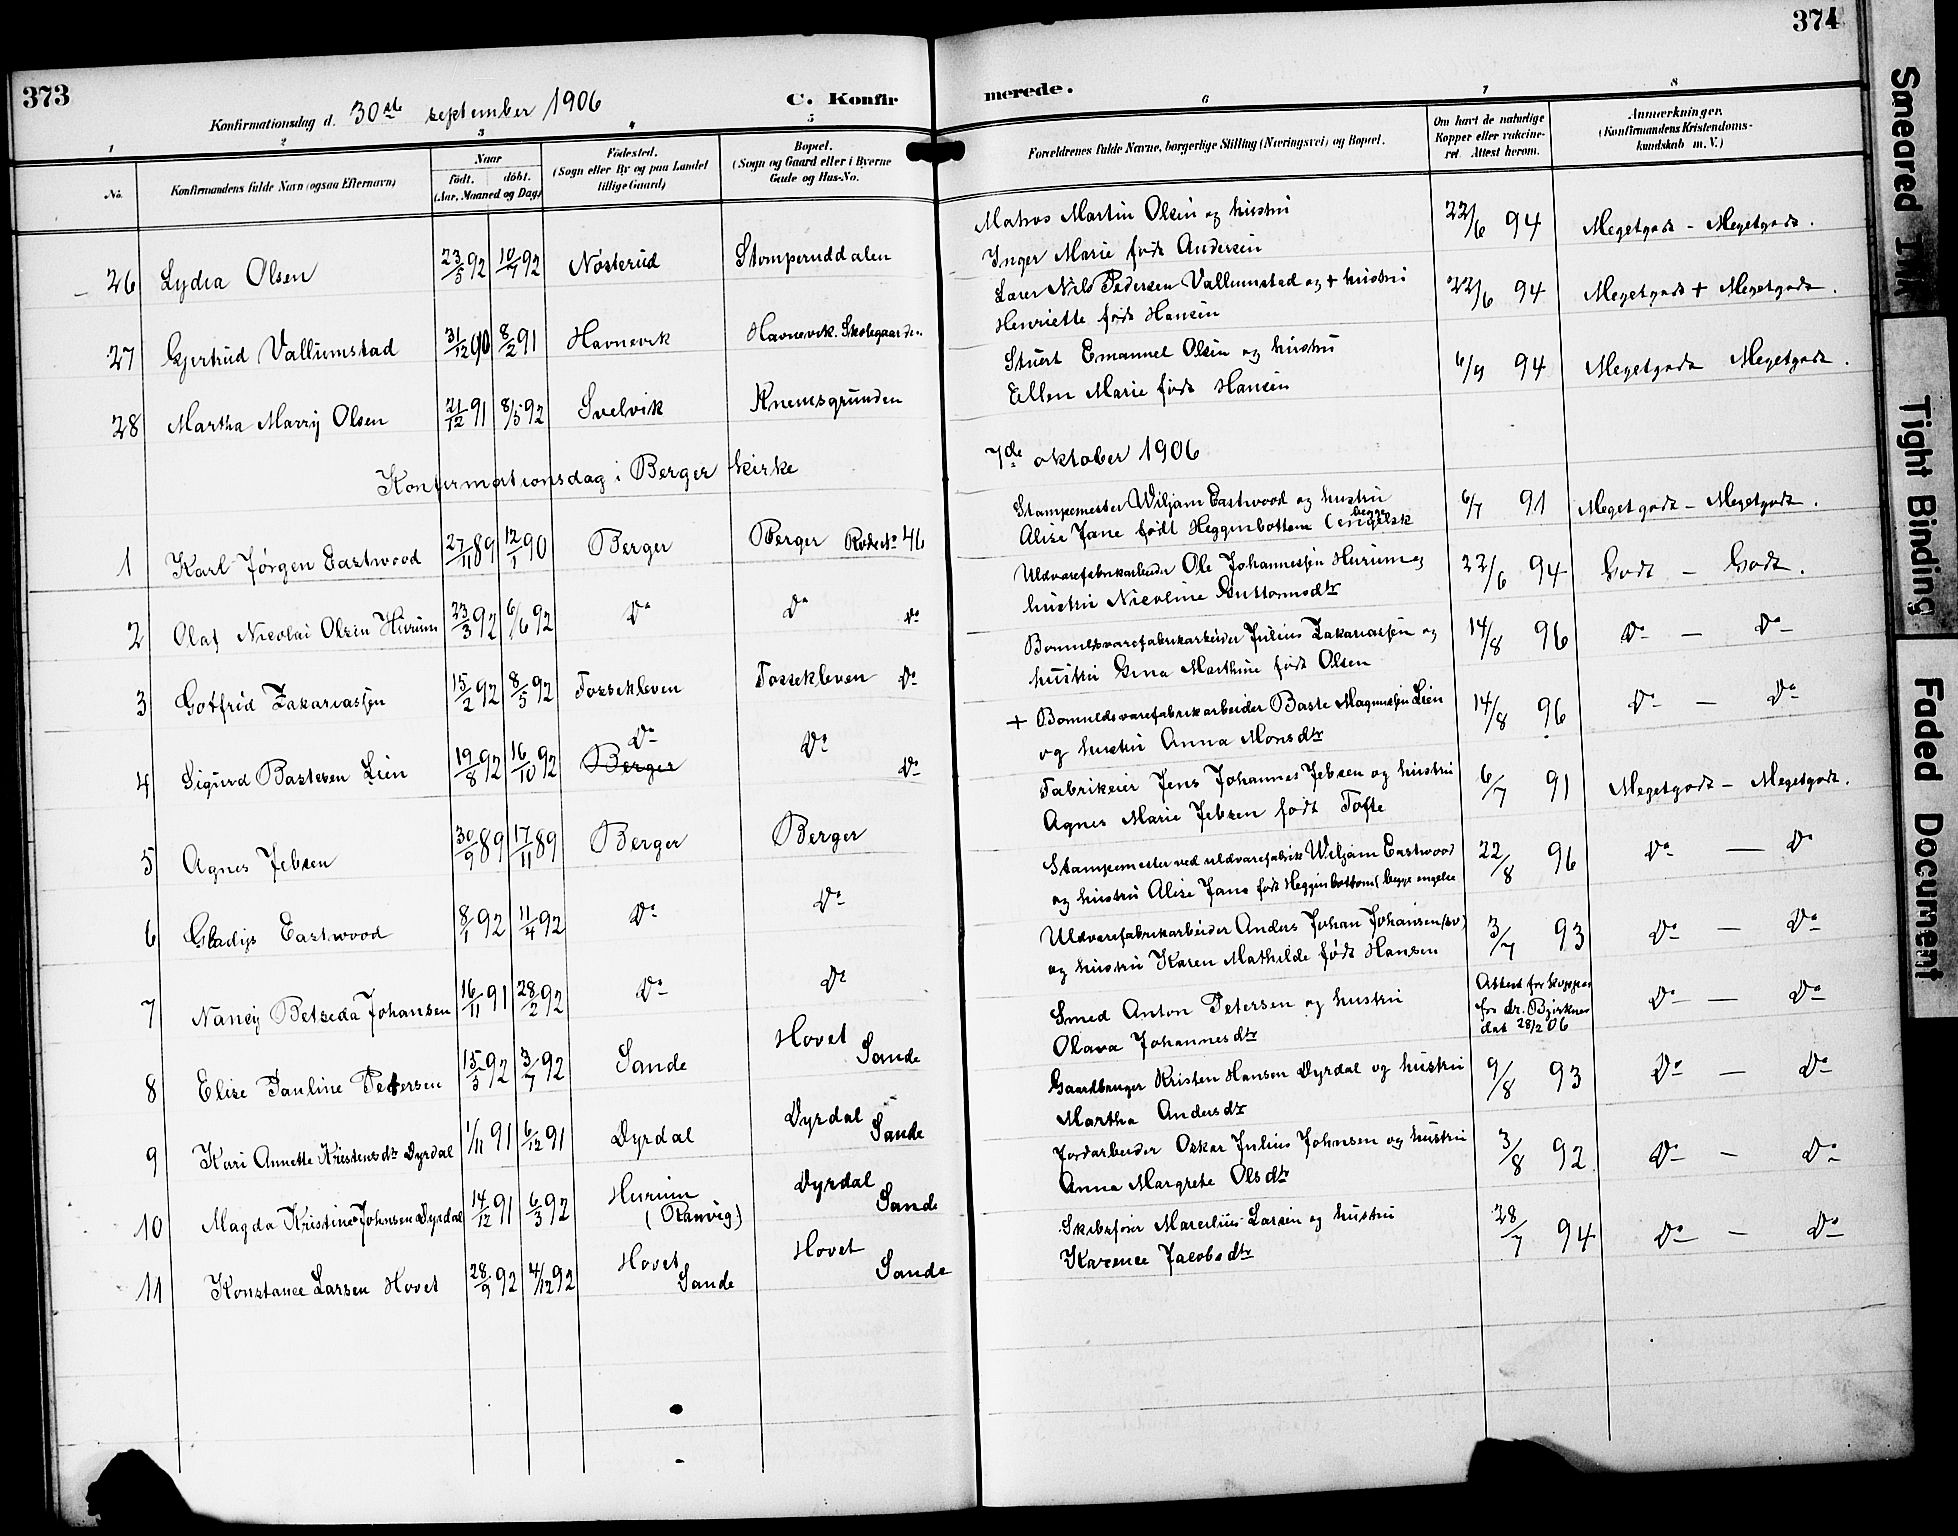 373
374
Konfirmationsdag d. 30te september 1906
C. Konfirmerede.
1 2 3 4 5 6 7 8
No.
Konfirmandens fulde Navn (ogsaa Efternavn)
Naar
født. døbt.
(Aar, Maaned og Dag)
Fødested.
(Sogn eller By og paa Landet
tillige Gaard)
Bopæl.
(Sogn og Gaard eller i Byerne
Gade og Hus-No.
Forældrenes fulde Navne, borgerlige Stilling (Næringsvei) og Bopæl.
Om havt de naturlige
Kopper eller vakcine-
ret Attest herom.
Anmærkninger.
(Konfirmandens Kristendoms-
kundskab m. V.)
26 Lydia Olsen 23/5 92 10/7 92 Nøsterud Stomperuddalen
Matros Martin Olsen og hustru
Inger Marie født Andersen
22/6 94 Megetgodt - Megetgodt.
27 Gjertrud Vallumstad 31/12 90 8/2 91 Havnevik Havnevik Skolegaarden
Lærer Nils Pedersen Vallumstad og + hustru
Henriette født Hansen
22/6 94 Megetgodt + Megetgodt.
28 Martha Marry Olsen 21/12 91 8/5 92 Svelvik Knemsgrunden
Stuert Emanuel Olsen og hustru
Ellen Marie født Hansen
6/9 94 Megetgodt Megetgodt.
Konfirmationsdag i Berger kirke 7de oktober 1906
1 Karl Jørgen Eastwood 27/11 89 12/1 90 Berger Berger Rode No 46
Stampemester Wiljam Eastwood og hustru
Alise Jane født Heggenbottom (begge engelsk
6/7 91 Megetgodt - Megetgodt.
2 Olaf Nicolai Olsen Hurum 23/3 92 6/6 92 Do Do Do
Uldvarefabrikarbeider Ole Johannessen Hurum og
hustru Nicoline Guttormsdtr
22/6 94 Godt - Godt.
3 Gotfrid Zakariassen 15/2 92 8/5 92 Fossekleven Fossekleven Do
Bomuldsvarefabrikarbeider Julius Zakariassen og
hustru Gina Marthine født Olsen
14/8 96 Do - Do
4 Sigurd Bastesen Lien 19/8 92 16/10 92 Do Berger Do Do
+ Bomuldsvarefabrikarbeider Baste Magnussen Lien
og hustru Anna Monsdtr
14/8 96 Do - Do
5 Agnes Jebsen 30/9 89 17/11 89 Berger Berger
Fabrikeier Jens Johannes Jebsen og hustru
Agnes Marie Jebsen født Tofte
6/7 91 Megetgodt - Megetgodt.
6 Gladys Eastwood 8/1 92 11/4 92 Do Do
Stampemester ved uldvarefabrik Wiljam Eastwood
og hustru Alise Jane født Heggenbottom (begge engelske
22/8 96 Do - Do
7 Nancy Betseda Johansen 16/11 91 28/2 92 Do Do
Uldvarefabrikarbeider Anders Johan Johansen (sv)
og hustru Karen Mathilde født Hansen
3/7 93 Do - Do
8 Elise Pauline Petersen 15/3 92 3/7 92 Sande Hovet Sande
Smed Anton Petersen og hustru
Olava Johannesdtr
Attest for kopper
fra dr. Bjerknes
dat 28/2 06
Do - Do
9 Kari Annette Kristensdtr Dyrdal 1/11 91 6/12 91 Dyrdal Dyrdal Sande
Gaardbruger Kristen Hansen Dyrdal og hustru
Martha Andersdtr
9/8 93 Do - Do
10 Magda Kristine Johnsen Dyrdal 14/12 91 6/3 92 Hurum Dyrdal Sande
Jordarbeider Oskar Julius Johnsen og hustru
Anna Margrete Olsdtr
3/8 92 Do - Do
11 Konstance Larsen Hovet 28/9 92 4/12 92 Hovet Sande Hovet Sande
Skibsfører Marelius Larsen og hustru
Karence Jacobsdtr
28/7 94 Do - Do
Smeared Ink
Tight Binding
Faded Document